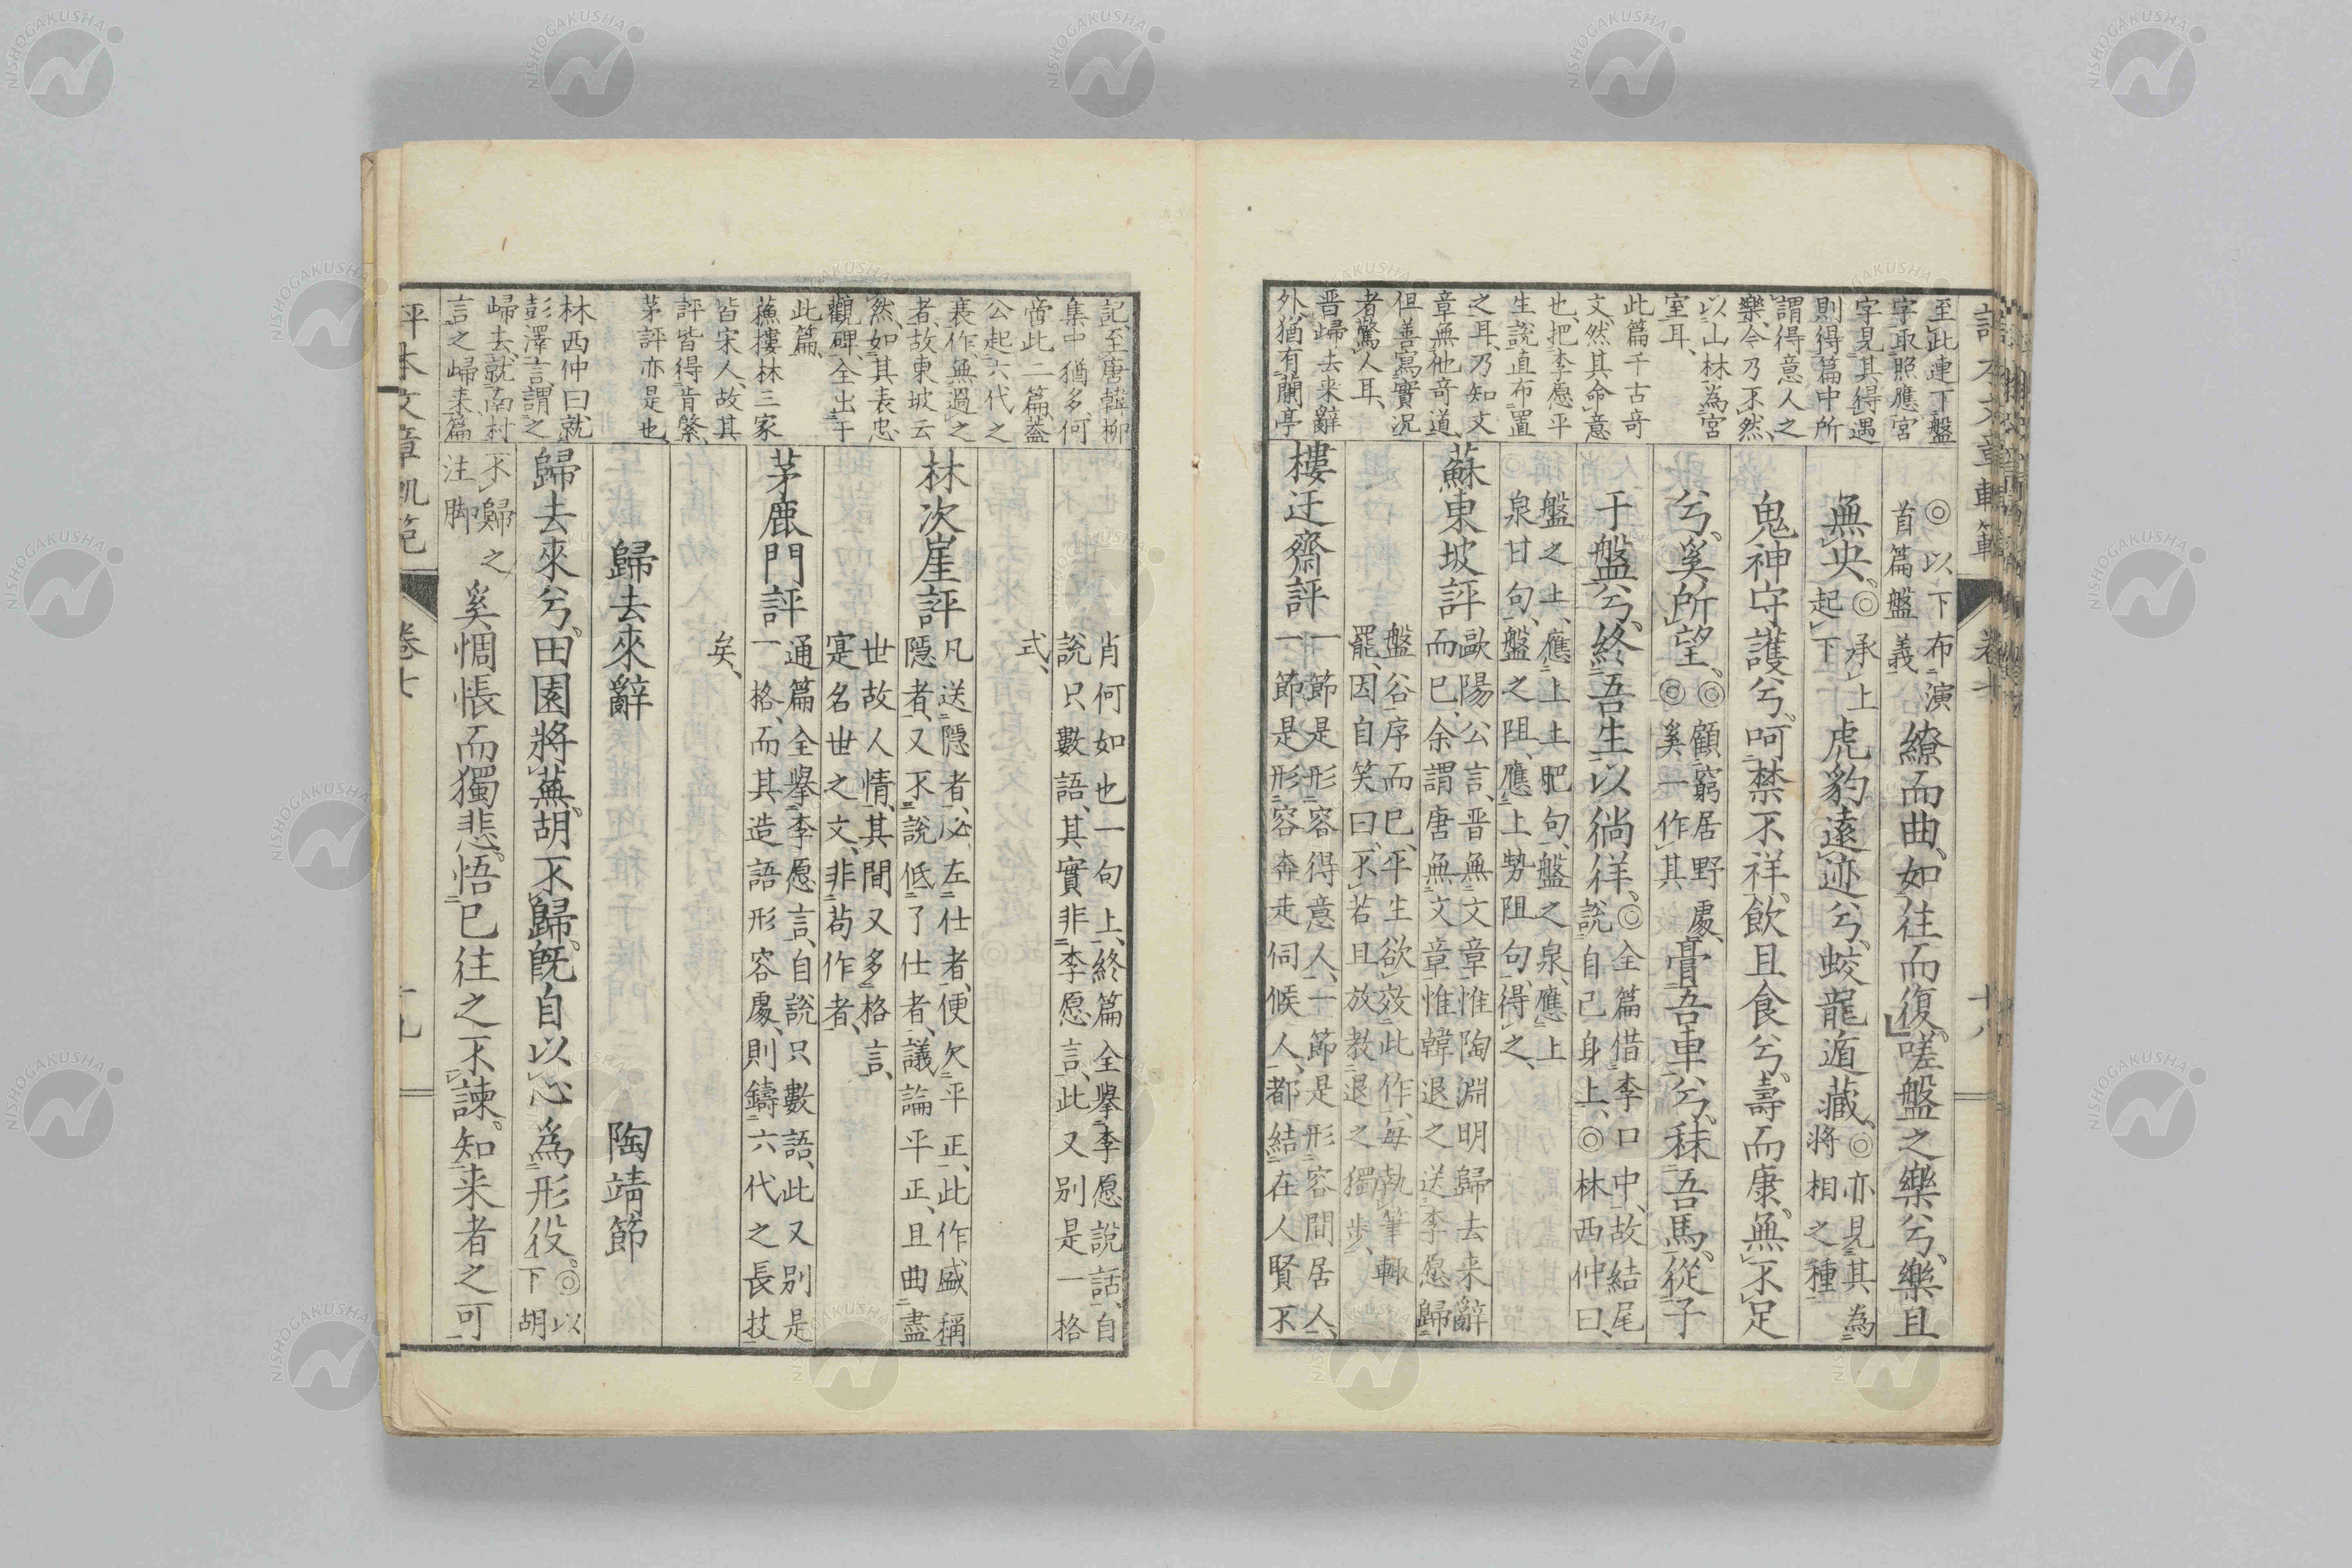 評本文章軌範 卷七 十八
至此連下盤
字取照應宮
字見其得遇
則得篇中所
謂得意人之
樂、今乃不然、
以山林為宮
室耳、
此篇千古奇
文、然其命意
也、把李愿平
生說直布置
之耳、乃知文
章無他奇道、
但善寫實况
者驚人耳、
晋歸去来辭
外猶有蘭亭
◎以下布演
首篇盤義
繚而曲、如往而復。嗟盤之樂兮、樂且
無央。◎承上
起下
虎豹遠迹兮、蛟龍遁藏。◎亦見其為
將相之種
鬼神守護兮、呵禁不祥。飲且食兮、壽而康。無不足
兮、奚所望。◎顧窮居野處、
◎奚一作其
膏吾車兮、秣吾馬、從子
于盤兮、終吾生以徜徉。◎全篇借李口中、故結尾
說自己身上、◎林西仲曰、
盤之土、應上土肥句、盤之泉、應上
泉甘句、盤之阻、應上勢阻句、得之、
蘇東坡評
歐陽公言、晋無文章、惟陶淵明歸去来辭
而已、余謂唐無文章、惟韓退之送李愿歸
盤谷序而已、平生欲效此作、每執筆輙
罷、因自笑曰、不若且放教退之獨步、
樓迂齋評
一節是形容得意人、一節是形容閒居人、
一節是形容奔走伺候人、都結在人賢不
記、至唐韓柳
集中猶多、何
啻此二篇、蓋
公起六代之
衰作、無過之
者、故東坡云
然、如其表忠
觀碑、全出于
此篇、
蘓樓林三家
皆宋人、故其
評皆得肯綮、
茅評亦是也
林西仲曰、就
彭澤言、謂之
歸去、就南村
言之歸来篇
肖何如也一句上、終篇全擧李愿說話、自
說只數語、其實非李愿言、此又别是一格
式、
林次崖評
凡送隱者、必左仕者、便欠平正、此作盛稱
隱者、又不說低了仕者、議論平正、且曲盡
世故人情、其間又多格言、
寔名世之文、非苟作者、
茅鹿門評
通篇全擧李愿言、自說只數語、此又别是
一格、而其造語形容處、則鑄六代之長技
矣、
歸去來辭 陶靖節
歸去來兮、田園將蕪、胡不歸。既自以心為形役。◎以
下胡
不歸之
注脚
奚惆悵而獨悲。悟已往之不諫。知来者之可
評本文章軌範 卷七 十九